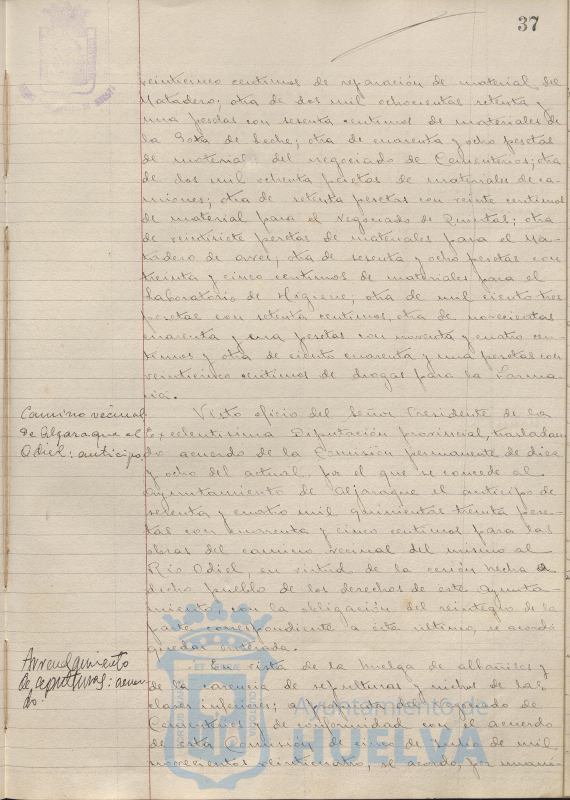 37
veinticinco centimos de reparación de material del
Matadero; otra de dos mil ochocientas setenta y
una pesetas con sesenta centimos de materiales de
la Gota de Leche; otra de cuarenta y ocho pesetas
de material del negociado de Cementerios; otra
de dos mil ochenta pesetas de materiales de ca-
miones; otra de setenta pesetas con veinte centimos
de material para el Negociado de Quintas; otra
de veintisiete pesetas de materiales para el Ma-
tadero de aves; otra de sesenta y ocho pesetas con
treinta y cinco centimos de materiales para el
Laboratorio de Higiene; otra de mil ciento tres
pesetas con setenta centimos, otra de novecientas
cuarenta y una pesetas con noventa y cuatro cen-
timos y otra de ciento cuarenta y una pesetas con
veinticinco centimos de drogas para la Farma-
cia.
Camino vecinal
de Aljaraque al
Odiel: anticipo.
Visto oficio del Señor Presidente de la
Excelentisima Diputación provincial, trasladan-
do acuerdo de la Comision permanente de diez
y ocho del actual, por el que se concede al
Ayuntamiento de Aljaraque el anticipo de
setenta y cuatro mil quinientas treinta pese-
tas con cuarenta y cinco centimos para las
obras del camino vecinal del mismo al
Rio Odiel, en virtud de la cesión hecha a
dicho pueblo de los derechos de este Ayunta-
miento, con la obligación del reintegro de la
parte correspondiente a este ultimo, se acordó
quedar enterada.
Arrendamiento
de sepulturas: acuer-
do.
En vista de la huelga de albañiles y
de la carencia de sepulturas y nichos de las
clases inferiores; a propuesta del Negociado de
Cementerios y de conformidad con el acuerdo
de esta Comisión de cinco de Julio de mil
novecientos veinticuatro, se acordó, por unani-
Ayuntamiento de
HUELVA